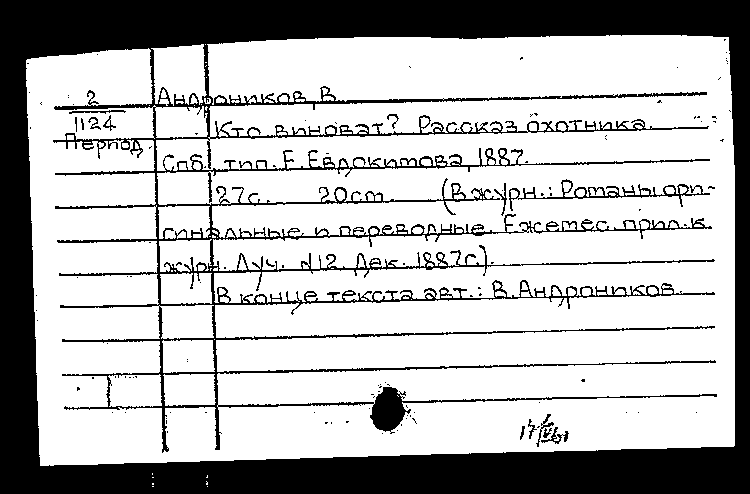 2
1124
Период.
Андроников, В.
Кто виноват? Рассказ охотника.
Спб., тип. Е. Евдокимова, 1887.
27с. 20см. (В журн.: Романы ори-
гинальные и переводные. Ежемес. прил. к
журн. Луч. №12. Дек. 1887г.).
В конце текста авт.: В. Андроников.